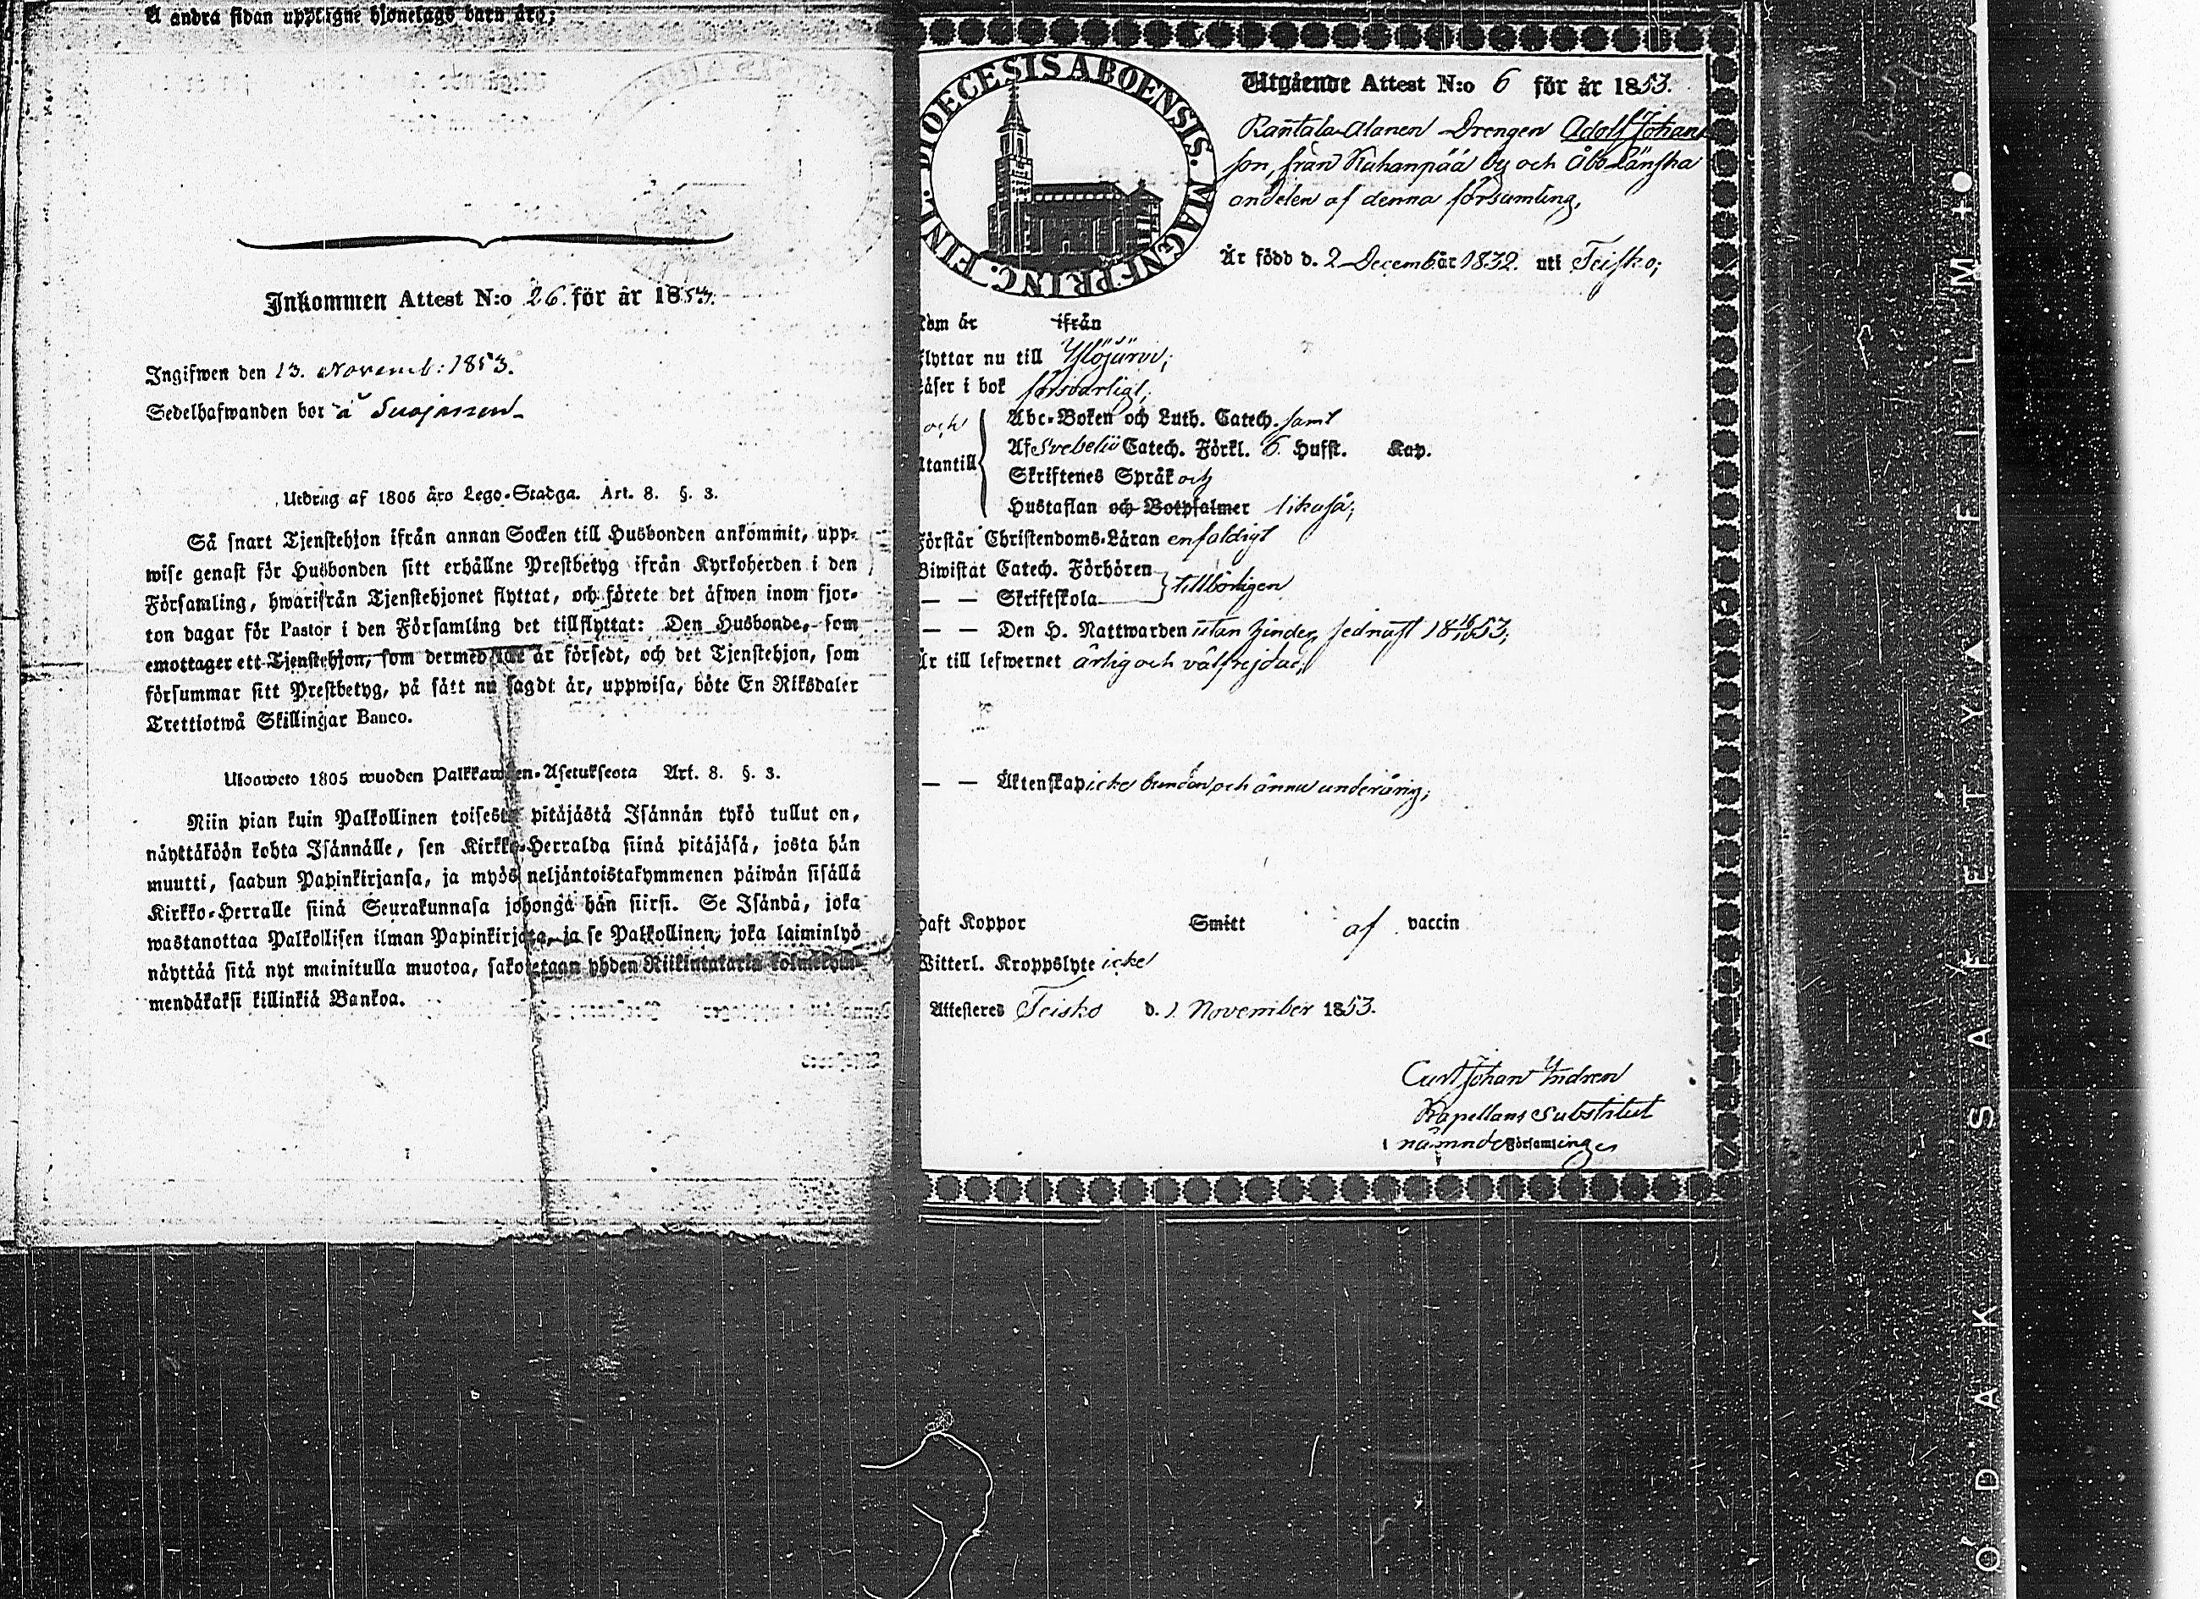 Å andra sidan upptagne hjonelags barn äro;
Inkommen Attest N:o 26. för år 1853.
Ingifwen den 13. Novemb: 1853.
Sedelhafwanden bor å Suojanen
Utdrag af 1805 års Lego-Stadga. Art. 8. §. 3.
Så snart Tjenstehjon ifrån annan Socken till Husbonden ankommit, upp-
wise genast för Husbonden sitt erhållne Prestbetyg ifrån Kyrkoherden i den
Församling, hwarifrån Tjenstehjonet flyttat, och förete det äfwen inom fjor-
ton dagar för Pastor i den Församling det tillflyttat: Den Husbonde, som
emottager ett Tjenstehjon, som dermed icke är försedt, och det Tjenstehjon, som
försummar sitt Prestbetyg, på sätt nu sagdt är, uppwisa, böte En Riksdaler
Trettiotwå Skillingar Banco.
Ulosweto 1805 wuoden Palkkawäen-Asetuksesta Art. 8. §. 3.
Niin pian kuin Palkollinen toisesta pitäjästä Isännän tykö tullut on,
näyttäköön kohta Isännälle, sen Kirkko-Herralda siinä pitäjäsä, josta hän
muutti, saadun Papinkirjansa, ja myös neljäntoistakymmenen päiwän sisällä
Kirkko-Herralle siinä Seurakunnasa johonga hän siirsi. Se Isändä, joka
wastanottaa Palkollisen ilman Papinkirjata, ja se Palkollinen, joka laiminlyö
näyttää sitä nyt mainitulla muotoa, sakoitetaan yhden Riikintalarin kolmekym-
mendäkaksi killinkiä Bankoa.
DIOECESIS ABOENSIS. MAGNI PRINC. FINL.
Utgående Attest N:o 6 för år 1853.
Rantala-Alanen Drengen Adolf Johans
son, från Kuhanpää by och Åbo Länska
andelen af denna församling,
Är född d. 2 December 1832. uti Teisko;
kom är ifrån
flyttar nu till Ylöjärvi;
Läser i bok försvarligt;
och Abc-Boken och Luth. Catech. samt
Utantill Af Svebelii Catech. Förkl. 6. Hufst. Kap.
Skriftenes Språk och
Hustaflan och Botpsalmer likaså;
Förstår Christendoms-Läran enfaldigt
Biwistat Catech. Förhören
— — Skriftskola tillbörligen
— — Den H. Nattwarden utan hinder, sednast 18 16/10 53;
Är till lefwernet ärlig och välfrejdad;
— — Äktenskap icke bunden och ännu underårig;
Haft Koppor Smitt af vaccin
Witterl. Kroppslyte icke
Attesteres Teisko d. 1 November 1853.
Curt Johan Indren
Kapellans Substitut
i nämnde Församling
KODAK SAFETY FILM